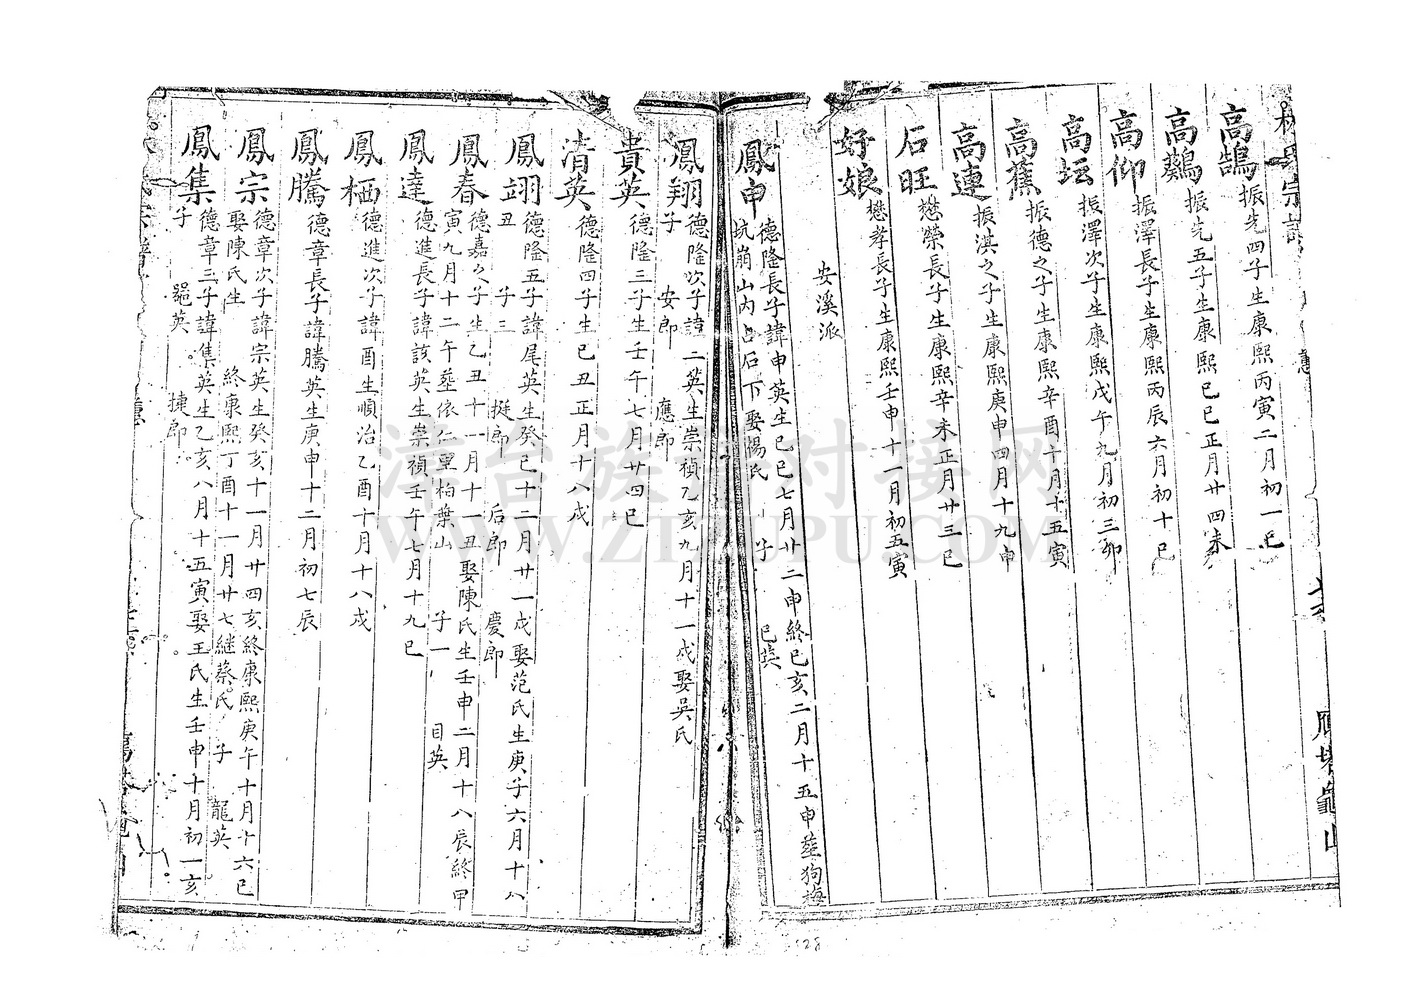 高鵠 振先四子生康熙丙寅二月初一巳
高鷯 振先五子生康熙己巳正月廿四未
高仰 振澤長子生康熙丙辰六月初十巳
高坛 振澤次子生康熙戊午九月初三卯
高蕉 振德之子生康熙辛酉十月十五寅
高連 振淇之子生康熙庚申四月十九申
石旺 懋榮長子生康熙辛未正月廿三巳
好娘 懋孝長子生康熙壬申十一月初五寅
安溪派
鳳申 德隆長子諱申英生己巳七月廿二申終己亥二月十五申葬狗
坑崩山内占石下娶楊氏 子 巳英
鳳翔 德隆次子諱二英生崇禎乙亥九月十一戍娶吳氏
子 安郎 應郎
貴英 德隆三子生壬午七月廿四巳
清英 德隆四子生己丑正月十八戍
鳳翊 德隆五子諱尾英生癸巳十二月廿一戍娶范氏生庚子六月十八
丑 子三 挺郎 后郎 慶郎
鳳春 德嘉之子生乙丑十一月十一丑娶陳氏生壬申二月十八辰終甲
寅九月十二午葬依仁里柏葉山 子一 目英
鳳達 德進長子諱該英生崇禎壬午七月十九巳
鳳栖 德進次子諱酉生順治乙酉十月十八戍
鳳騰 德章長子諱騰英生庚申十二月初七辰
鳳宗 德章次子諱宗英生癸亥十一月廿四亥終康熙庚午十月十六巳
娶陳氏生 終康熙丁酉十一月廿七継蔡氏 子 龍英
鳳集 德章三子諱集英生乙亥八月十五寅娶王氏生壬申十月初一亥
子 英 捷郎
漳台族谱对接网
WWW.ZTZUPU.COM
128